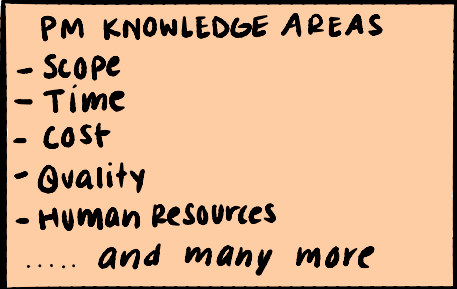 PM KNOWLEDGE AREAS
- Scope
- Time
- Cost
- Quality
- Human Resources
..... and many more